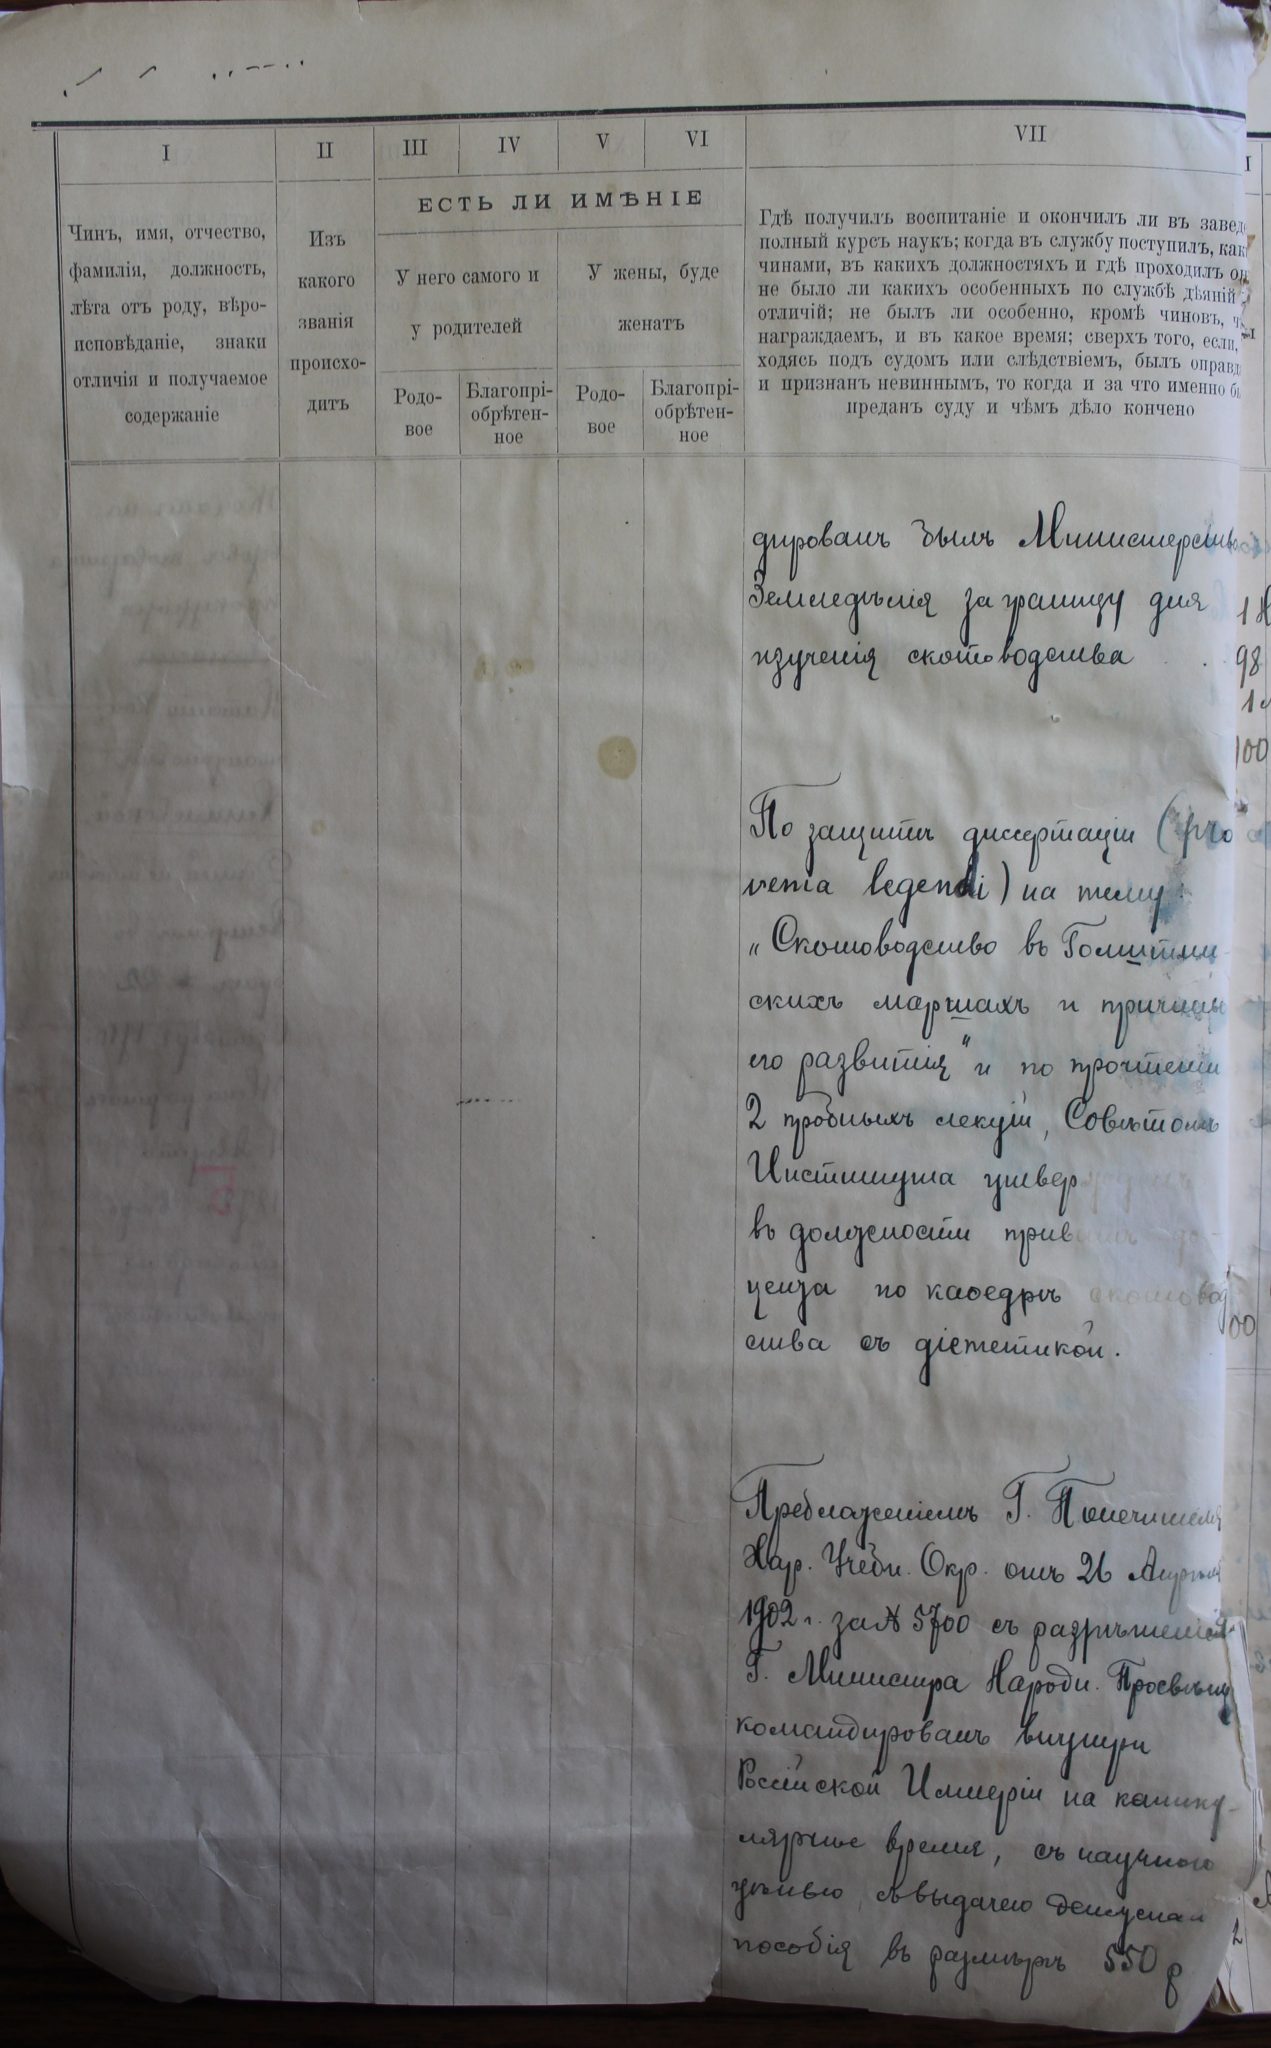 I
II
III
IV
V
VI
VII
ЕСТЬ ЛИ ИМѢНІЕ
Чинъ, имя, отчество,
фамилія, должность,
лѣта отъ роду, вѣро-
исповѣданіе, знаки
отличія и получаемое
содержаніе
Изъ
какого
званія
происхо-
дитъ
У него самого и
у родителей
У жены, буде
женатъ
Родо-
вое
Благопрі-
обрѣтен-
ное
Родо-
вое
Благопрі-
обрѣтен-
ное
Гдѣ получилъ воспитаніе и окончилъ ли въ завед
полный курсъ наукъ; когда въ службу поступилъ, как
чинами, въ какихъ должностяхъ и гдѣ проходилъ
не было ли какихъ особенныхъ по службѣ дѣяній
отличій; не былъ ли особенно, кромѣ чиновъ,
награждаемъ, и въ какое время; сверхъ того, если,
ходясь подъ судомъ или слѣдствіемъ, былъ оправд
и признанъ невиннымъ, то когда и за что именно
преданъ суду и чѣмъ дѣло кончено
дированъ былъ Министерств
Земледѣлія за границу для
изученія скотоводства
98
100
По защитѣ диссертаціи (pro
venia legendi) на тему:
„Скотоводство въ Голштин-
скихъ маршахъ и причины
его развитія" и по прочтеніи
2 пробныхъ лекцій, Совѣтомъ
Института утвержденъ
въ должности приватъ-до-
цента по каѳедрѣ скотовод
ства съ діететикой.
00
Предложеніемъ Г. Попечителя
Хар. Учебн. Окр. отъ 26 Апрѣля
1902 г. за № 5700 съ разрѣшенія
Г. Министра Народн. Просвѣщ
командированъ внутри
Россійской Имперіи на канику-
лярное время, съ научною
цѣлью, съ выдачею денежнаго
пособія въ размѣрѣ 550 р